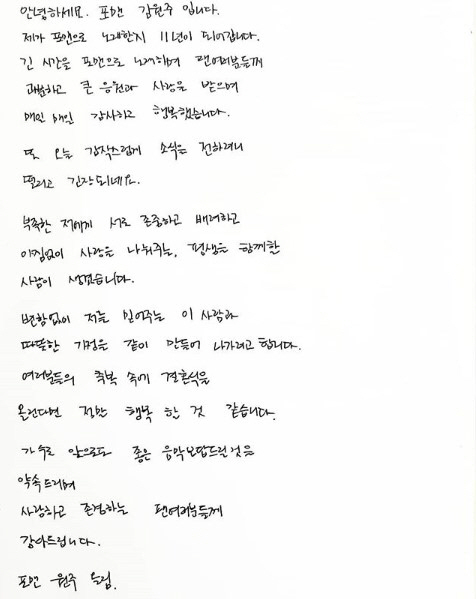 안녕하세요. 포맨 김원주 입니다.
제가 포맨으로 노래한지 11년이 되어갑니다.
긴 시간을 포맨으로 노래하며 팬여러분들께
과분하고 큰 응원과 사랑을 받으며
매일 매일 감사하고 행복했습니다.
또 오늘 갑작스럽게 소식을 전하려니
떨리고 긴장되네요.
부족한 저에게 서로 존중하고 배려하고
아낌없이 사랑을 나눠주는, 평생을 함께할
사람이 생겼습니다.
변함없이 저를 믿어주는 이 사람과
따뜻한 가정을 같이 만들어 나가려고 합니다.
여러분들의 축복 속에 결혼식을
올린다면 정말 행복 할 것 같습니다.
가수로 앞으로도 좋은 음악보답드릴것을
약속드리며
사랑하고 존경하는 팬여러분들께
감사드립니다.
포맨 원주 올림.